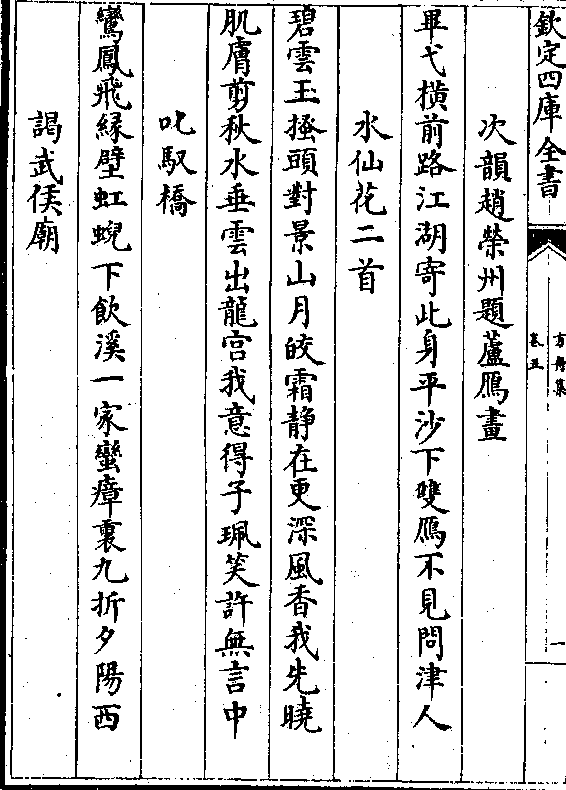 欽定四庫全書
方舟集
卷五
一
次韻趙榮州題蘆鴈畫
畢弋橫前路江湖寄此身平沙下雙鴈不見問津人
水仙花二首
碧雲玉搔頭對景山月皎霜静在更深風香我先曉
肌膚剪秋水垂雲出龍宫我意得子珮笑許無言中
叱馭橋
鸞鳳飛縁壁虹蜺下飲溪一家蠻瘴裏九折夕陽西
謁武侯廟